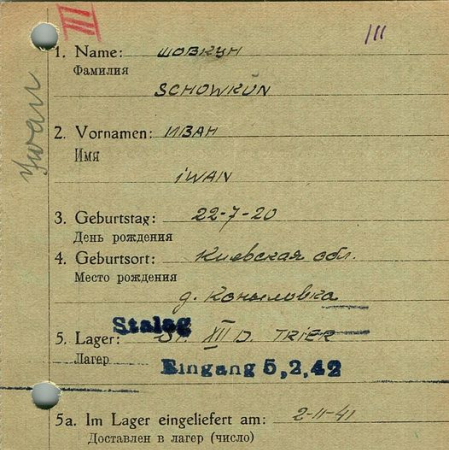 III
III
Iwan
1. Name: ШОВКУН
Фамилия
SCHOWKUN
2. Vornamen: ИВАН
Имя
IWAN
3. Geburtstag: 22-7-20
День рождения
4. Geburtsort: Киевская обл.
Место рождения
д. Коныловка
5. Lager: Stalag ST. XII D. TRIER
Лагер
Eingang 5,2,42
5a. Im Lager eingeliefert am: 2-11-41
Доставлен в лагер (число)